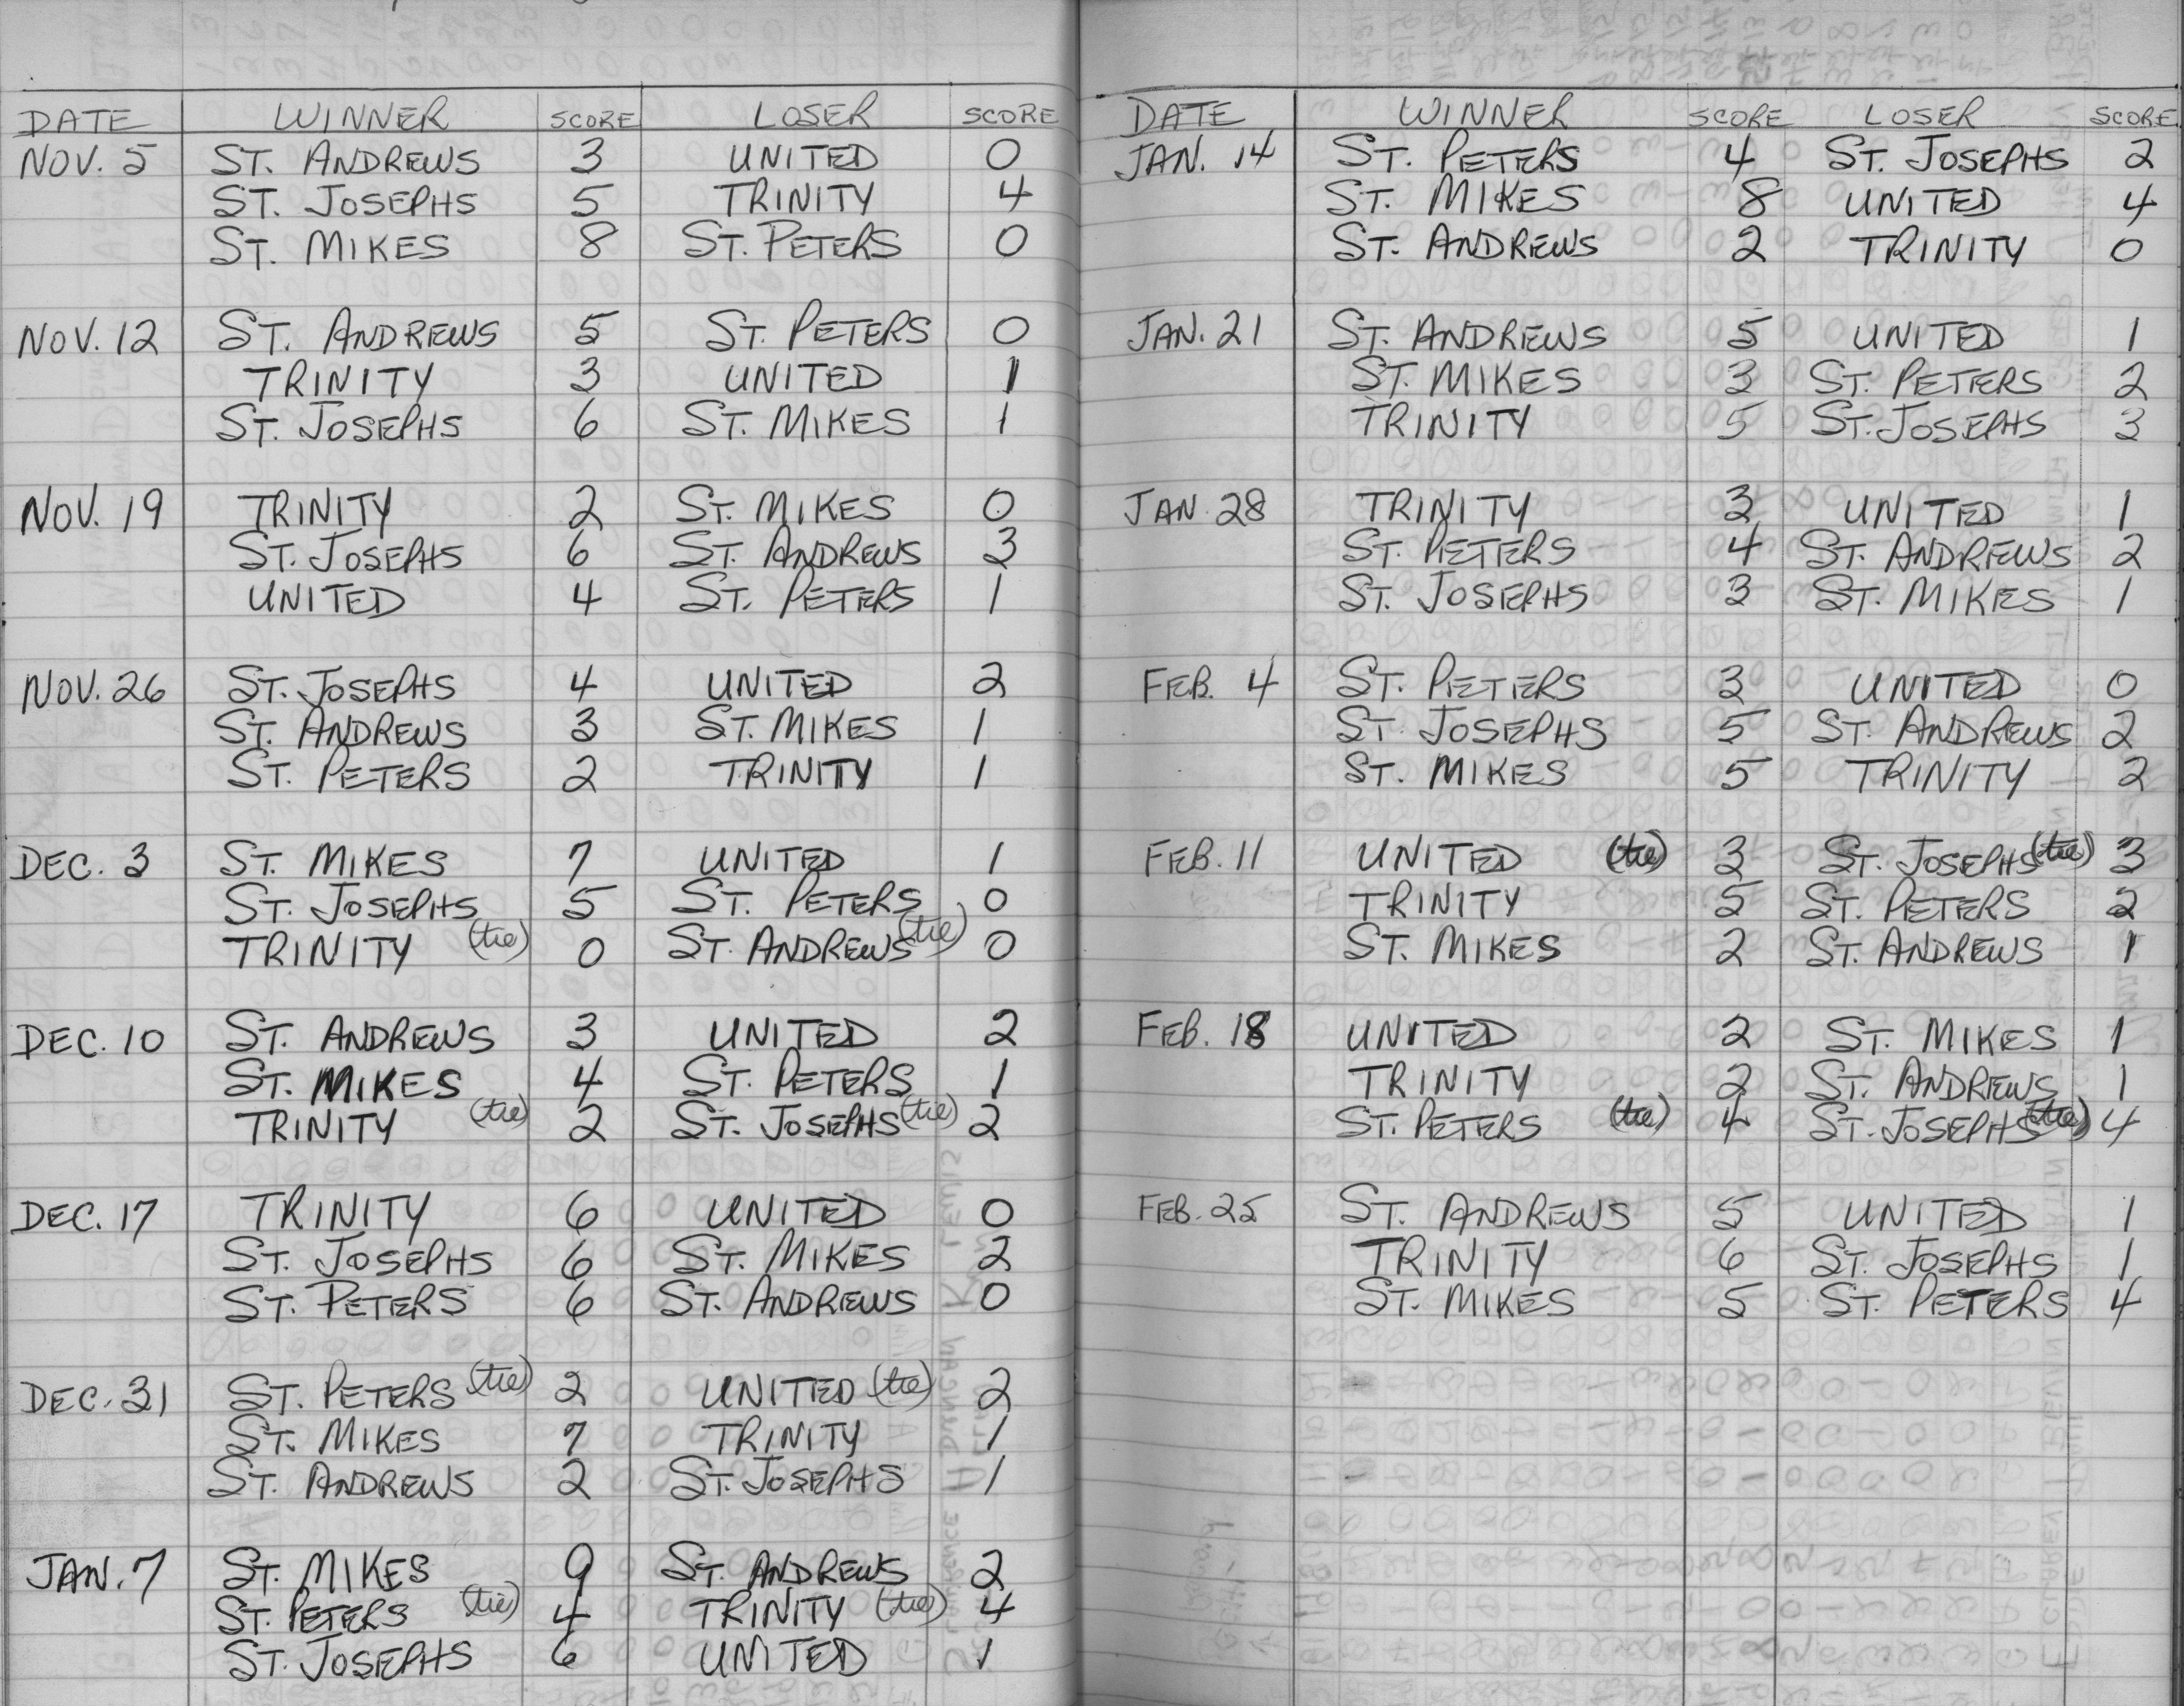 DATE WINNER SCORE LOSER SCORE
NOV. 5 ST. ANDREWS 3 UNITED 0
ST. JOSEPHS 5 TRINITY 4
ST. MIKES 8 ST. PETERS 0
NOV. 12 ST. ANDREWS 5 ST. PETERS 0
TRINITY 3 UNITED 1
ST. JOSEPHS 6 ST. MIKES 1
NOV. 19 TRINITY 2 ST. MIKES 0
ST. JOSEPHS 6 ST. ANDREWS 3
UNITED 4 ST. PETERS 1
NOV. 26 ST. JOSEPHS 4 UNITED 2
ST. ANDREWS 3 ST. MIKES 1
ST. PETERS 2 TRINITY 1
DEC. 3 ST. MIKES 7 UNITED 1
ST. JOSEPHS 5 ST. PETERS 0
TRINITY (tie) 0 ST. ANDREWS (tie) 0
DEC. 10 ST. ANDREWS 3 UNITED 2
ST. MIKES 4 ST. PETERS 1
TRINITY (tie) 2 ST. JOSEPHS (tie) 2
DEC. 17 TRINITY 6 UNITED 0
ST. JOSEPHS 6 ST. MIKES 2
ST. PETERS 6 ST. ANDREWS 0
DEC. 31 ST. PETERS (tie) 2 UNITED (tie) 2
ST. MIKES 7 TRINITY 1
ST. ANDREWS 2 ST. JOSEPHS 1
JAN. 7 ST. MIKES 9 ST. ANDREWS 2
ST. PETERS (tie) 4 TRINITY (tie) 4
ST. JOSEPHS 6 UNITED 1
DATE WINNER SCORE LOSER SCORE
JAN. 14 ST. PETERS 4 ST. JOSEPHS 2
ST. MIKES 8 UNITED 4
ST. ANDREWS 2 TRINITY 0
JAN. 21 ST. ANDREWS 5 UNITED 1
ST. MIKES 3 ST. PETERS 2
TRINITY 5 ST. JOSEPHS 3
JAN. 28 TRINITY 3 UNITED 1
ST. PETERS 4 ST. ANDREWS 2
ST. JOSEPHS 3 ST. MIKES 1
FEB. 4 ST. PETERS 3 UNITED 0
ST. JOSEPHS 5 ST. ANDREWS 2
ST. MIKES 5 TRINITY 2
FEB. 11 UNITED (tie) 3 ST. JOSEPHS (tie) 3
TRINITY 5 ST. PETERS 2
ST. MIKES 2 ST. ANDREWS 1
FEB. 18 UNITED 2 ST. MIKES 1
TRINITY 2 ST. ANDREWS 1
ST. PETERS (tie) 4 ST. JOSEPHS (tie) 4
FEB. 25 ST. ANDREWS 5 UNITED 1
TRINITY 6 ST. JOSEPHS 1
ST. MIKES 5 ST. PETERS 4